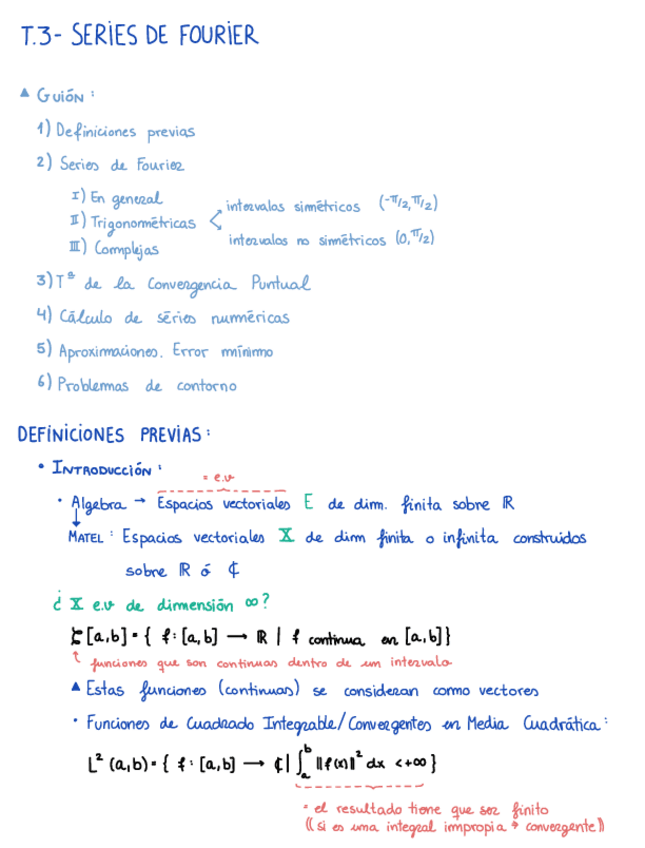 T.3- SERIES DE FOURIER
▲ GUIÓN:
1) Definiciones previas
2) Series de Fourier
I) En general
II) Trigonométricas < intervalos simétricos (-π/2, π/2)
intervalos no simétricos (0, π/2)
III) Complejas
3) Tª de la Convergencia Puntual
4) Cálculo de séries numéricas
5) Aproximaciones. Error mínimo
6) Problemas de contorno
DEFINICIONES PREVIAS:
• INTRODUCCIÓN:
= e.v
· Algebra → Espacios vectoriales E de dim. finita sobre ℝ
↓
MATEL: Espacios vectoriales X de dim finita o infinita construidos
sobre ℝ ó ₵
¿ X e.v de dimensión ∞?
ζ[a,b] = { f: [a,b] → ℝ | f continua en [a,b]}
↑ funciones que son continuas dentro de un intervalo
▲ Estas funciones (continuas) se consideran como vectores
· Funciones de Cuadrado Integrable/Convergentes en Media Cuadrática:
L² (a,b) = { f: [a,b] → ₵ | ∫ₐᵇ ||f(x)||² dx < +∞ }
= el resultado tiene que ser finito
((si es una integral impropia → convergente))